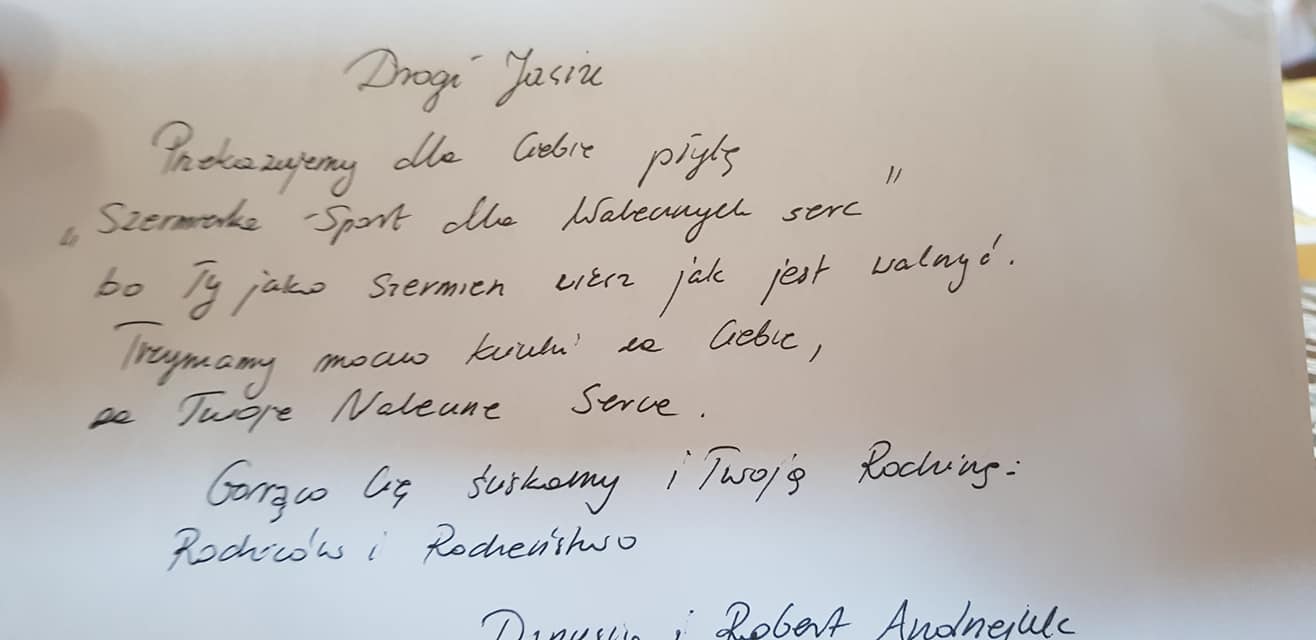 Drogi Jasiu
Przekazujemy dla Ciebie płytę
„Szermierka - Sport dla Walecznych serc"
bo Ty jako Szermierz wiesz jak jest walczyć.
Trzymamy mocno kciuki za Ciebie,
za Twoje Waleczne Serce.
Gorąco Cię ściskamy i Twoją Rodzinę:
Rodziców i Rodzeństwo
i Robert Andrzejuk